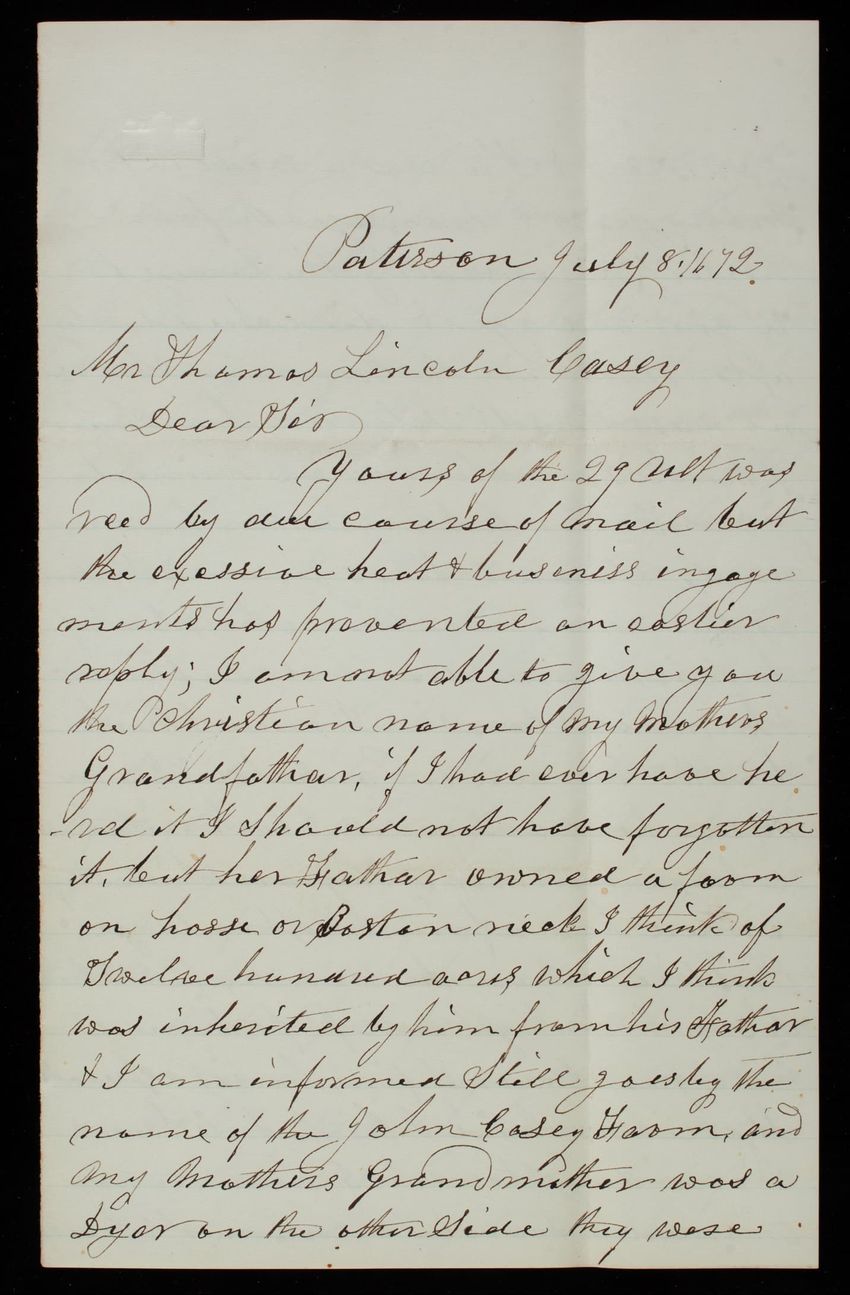 Paterson July 8. 1872
Mr Thomas Lincoln Casey
Dear Sir
Yours of the 29 Ult was
recd by due course of mail but
the exessive heat & business ingage
ments has prevented an earlier
reply; I am not able to give you
the Christian name of my Mothers
Grandfather, if I had ever have he
-rd it I Should not have forgotten
it, but her Father owned a farm
on hosse or Boston neck I think of
Twelve hundred acres, which I think
was inherited by him from his Father
& I am informed Still goes by the
name of the John Casey Farm, and
My Mothers Grandmother was a
Dyer on the other Side they were